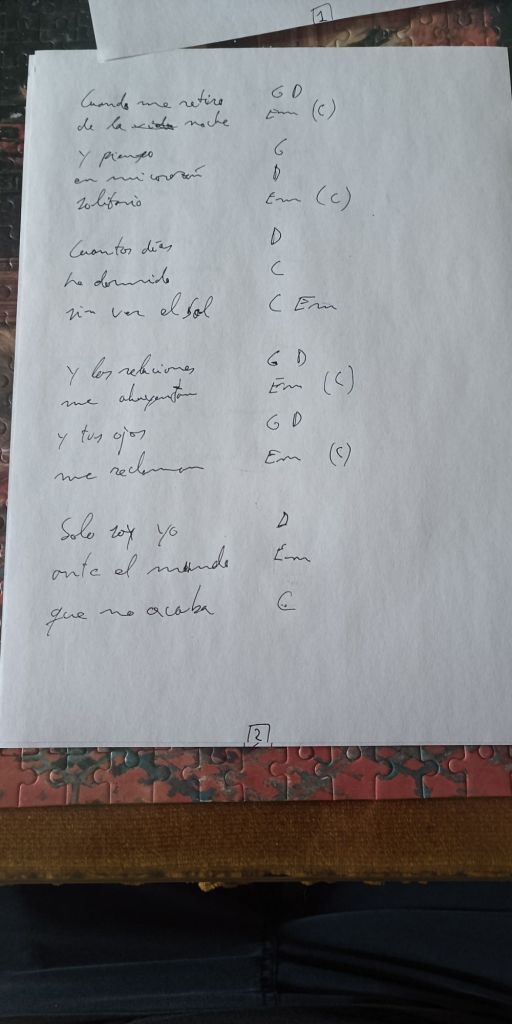 1
Cuando me retiro G D
de la noche Em (C)
Y pienso G
en mi corazón D
solitario Em (C)
Cuantos días D
he dormido C
sin ver el sol C Em
Y las relaciones G D
me ahuyentan Em (C)
y tus ojos G D
me reclaman Em (C)
Solo soy yo D
ante el mundo Em
que no acaba C
2